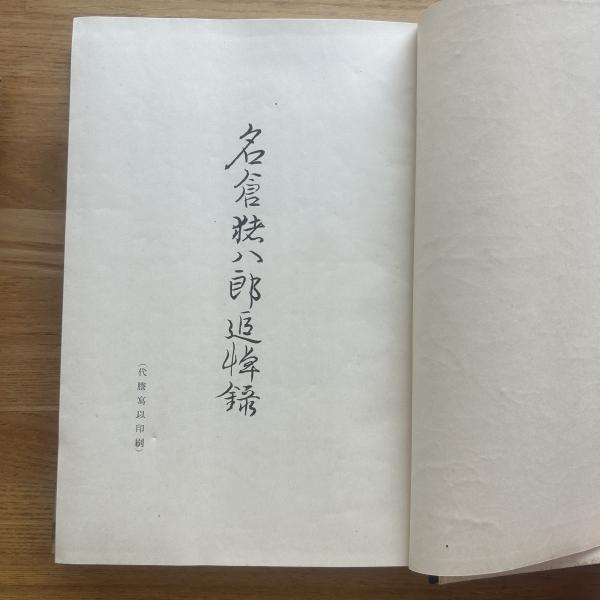 名倉猪八郎追悼錄
(代謄寫以印刷)